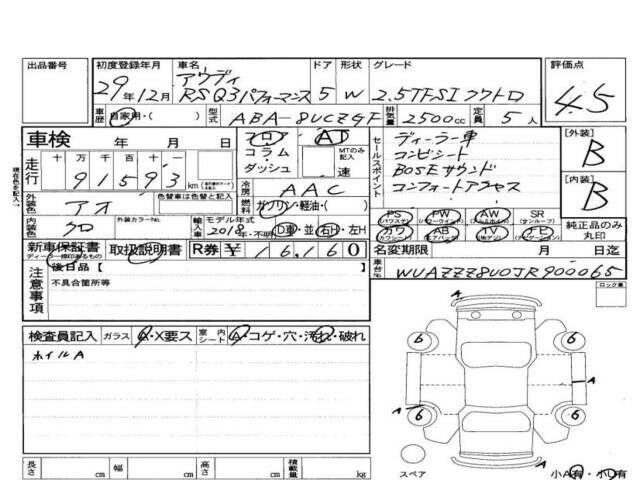 出品番号 初度登録年月 車名 ドア 形状 グレード 評価点
29年12月 アウディ RSQ3パフォーマンス 5 W 2.5TFSIクワトロ 4.5
車歴 自家用・( ) 型式 ABA-8UCZGF 排気量 2500cc 定員 5人
車検 年 月 日 フロア AT ディーラー車 [外装]
走行 十万千百十一 コラム・ MTのみ記入 セールスポイント コンビシート B
91593 km ダッシュ 速 BOSEサウンド [内装]
外装色 アオ 色替車は色替と記入 冷房 AAC コンフォートアクセス B
燃料 ガソリン・軽油・( )
内装色 クロ 外装カラーNo. 輸入車 モデル年年 2018年・不明 D車・並 右H・左H
PS (パワステ) PW (パワーウインド) AW (アルミ) SR (サンルーフ)
カワ (カワシート) AB (エアバック) TV (地デジ) ナビ (ナビゲーション) 純正品のみ丸印
新車保証書 取扱説明書 R券 ¥16,160 名変期限 月 日迄
ディーラー捺印あるもの
車台No. WUAZZZ8U0JR900065
注意事項 後日品[ ]
不具合箇所等
ロック車
検査員記入 ガラス A・X要ス 室内シート A・コゲ・穴・汚れ・破れ
ホイルA
A
6 6
A A
6 6
A
長さ cm 幅 cm 高さ cm 積載量 kg
スペア 小A有・小U有